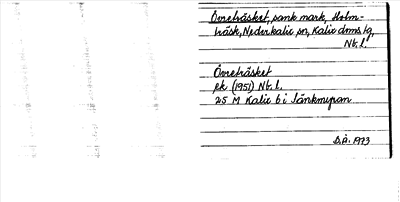 Övreträsket, sank mark, Holm-
träsk, Nederkalix sn, Kalix dmstg,
Nb. l.
Övreträsket
ek (1951) Nb. l.
25 M Kalix 6 i
D.Å. 1973